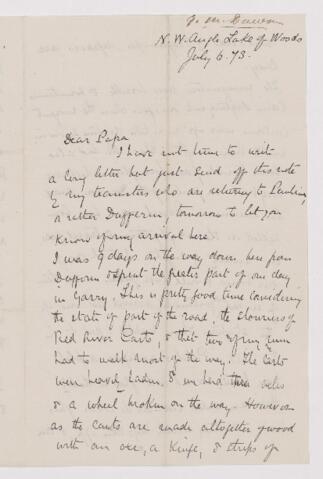 G. M. Dawson
N. W. Angle Lake of Woods
July 6. 73.
Dear Papa
I have not time to write
a long letter but just send off this note
by my teamsters who are returning to
or rather Dufferin, tomorrow to let you
know of my arrival here.
I was 9 days on the way down here from
Dufferin & spent the greater part of one day
in Garry. This is pretty good time considering
the state of part of the road, the slowness of
Red River Carts, & that two of my men
had to walk most of the way. The carts
were heavily laden & we had three axles
& a wheel broken on the way. However
as the carts are made altogether of wood
with an axe, a knife, & strips of